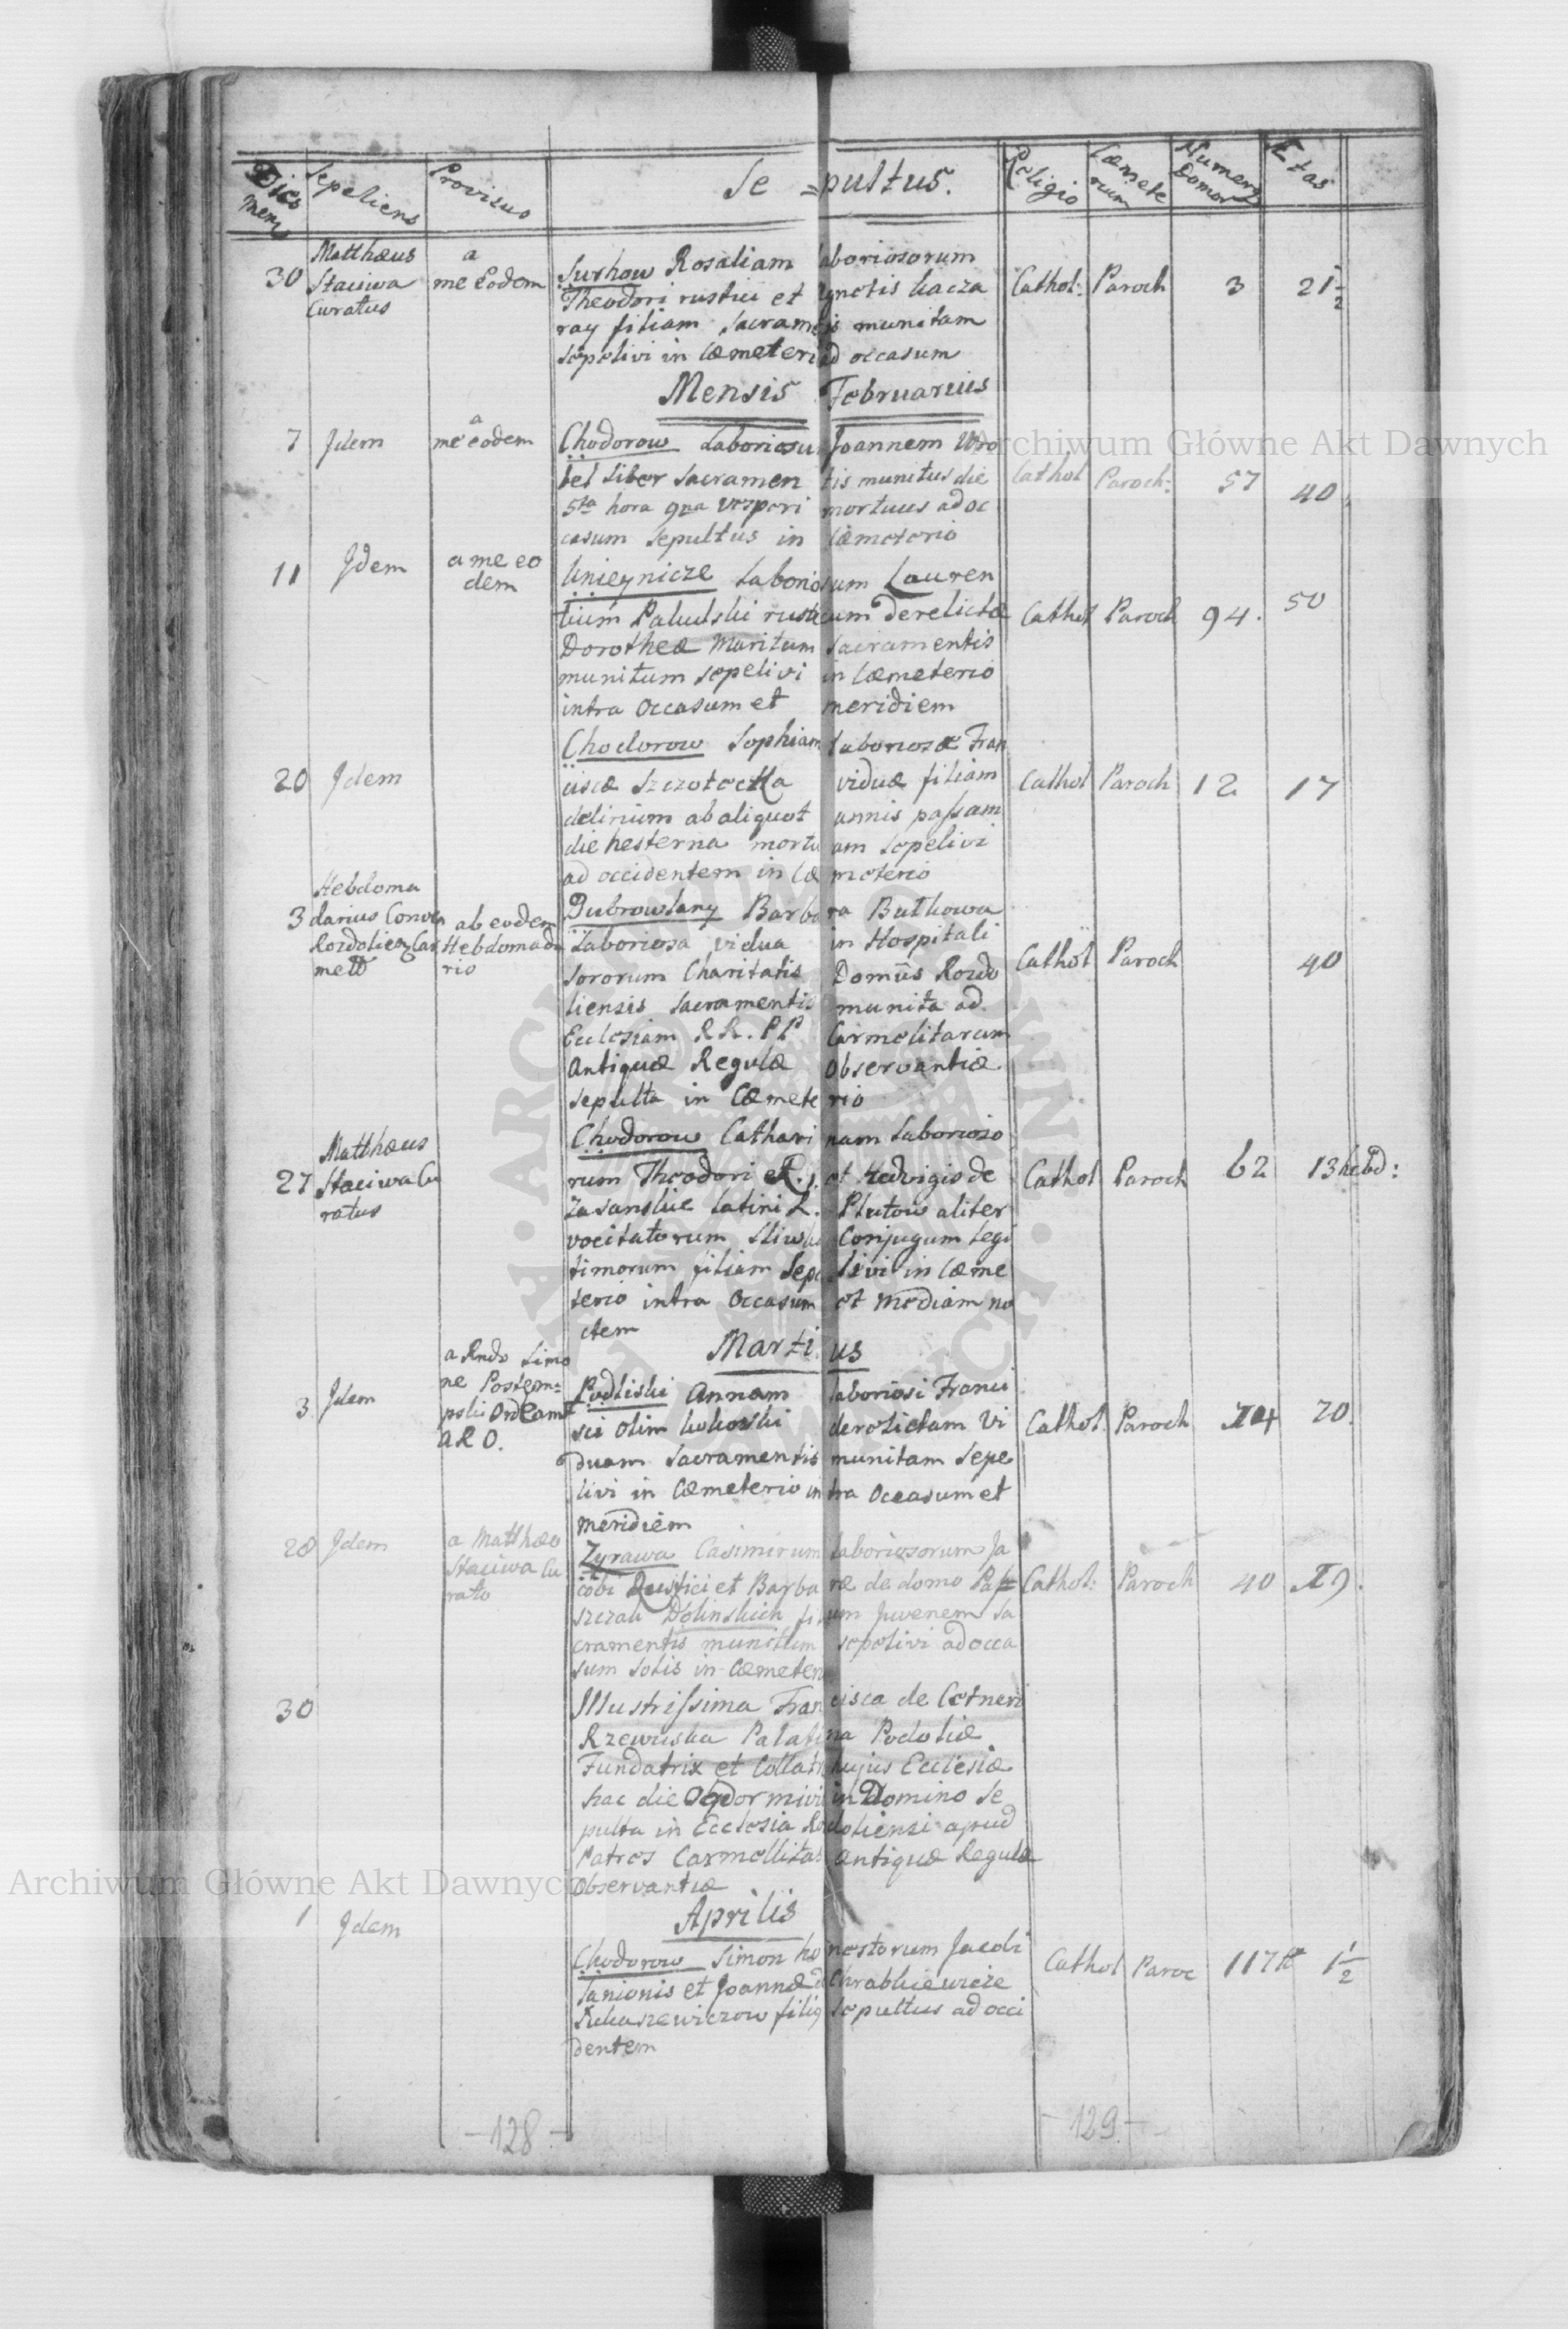 Dies Mens
Sepeliens
Provisus
Se=pultus.
Religio
Cæmeterium
Numerus Domor
Ætas
30
Matthæus
Staciwa
Curatus
a
me eodem
Surhow Rosaliam laboriosorum
Theodori rustici et Agnetis
ray filiam Sacramtis munitam
sepelivi in Cæmeterio ad occasum
Cathol: Paroch 3 21 1/2
Mensis Februarius
7 Jdem
a
me eodem
Chodorow Laboriosum Joannem Wro
bel Liber Sacramen tis munitus die
5ta hora 9na vesperi mortuus ad oc
casum sepultus in Cæmeterio
Cathol Paroch: 57 40
11 Jdem
a me eo
dem
Laboriosum Lauren
tium rusticum derelictæ
Dorotheæ Maritum Sacramentis
munitum sepelivi in Cæmeterio
intra Occasum et meridiem
Cathol Paroch 94. 50
Chodorow Sophiam Laboriosæ Fran
20 Jdem
ciscæ viduæ filiam
delirium ab aliquot annis passam
die hesterna mortu am sepelivi
ad occidentem in Cæ meterio
Cathol Paroch 12 17
Hebdoma
3 darius Conven
melit
ab eodem
Hebdomada
rio
Dubrowlany Barba ra Buthowa
Laboriosa vidua in Hospitali
Sororum Charitatis Domûs Rozdo
liensis Sacramentis munita ad
Ecclesiam R R. P P Carmelitarum
Antiquæ Regulæ Observantiæ
sepulta in Cæmete rio
Cathol Paroch 40
Matthæus
27 Staciwa Cu
ratus
Chodorow Cathari nam Laborioso
rum Theodori et Hedvigis de
Zasanskie Latini L. aliter
vocitatorum Conjugum legi
timorum filiam Sepe livi in Cæme
terio intra Occasum et Mediam no
ctem
Cathol Paroch 62 13 hebd:
Martius
3 Jdem
a Rndo Simo
ne
A R O.
Podliski Annam Laboriosi Franci
sci olim derelictam Vi
duam Sacramentis munitam Sepe
livi in Cæmeterio intra Occasum et
meridiem
Cathol. Paroch 70.
28 Jdem
a Matthæo
Staciwa Cu
rato
Zyrawa Casimirum Laboriosorum Ja
cobi Rustici et Barba ræ de domo
Dolinskich filium Juvenem Sa
cramentis munitum sepelivi ad occa
sum Solis in Cæmeterio
Cathol: Paroch 40 19.
30
Illustrissima Francisca de Cetneri
Rzewuska Palatina Podoliæ
Fundatrix et Collatrix hujus Ecclesiæ
hac die Obdormivit in Domino Se
pulta in Ecclesia Rozdoliensi apud
Patres Carmellitas Antiquæ Regulæ
Observantiæ
Aprilis
1 Jdem
Chodorow Simon honestorum Jacobi
Lanionis et Joannæ
filius sepultus ad occi
dentem
Cathol Paroc 117 1 1/2
-128-
-129-
Archiwum Główne Akt Dawnych
Archiwum Główne Akt Dawnych